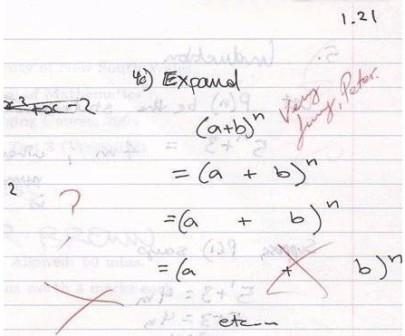 1.21
4c) Expand
(a+b)ⁿ
Very funny, Peter.
= (a + b)ⁿ
?
=(a + b)ⁿ
=(a + b)ⁿ
etc